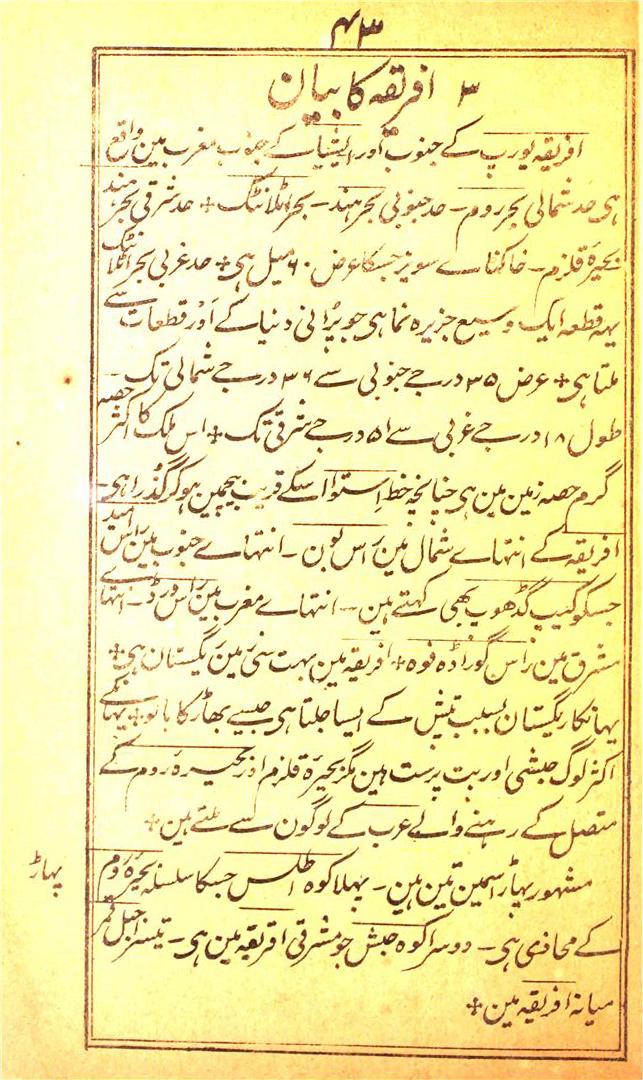 ۴۳
۳ افریقہ کا بیان
افریقہ یورپ کے جنوب اور ایشیا کے جنوب مغرب مین واقع
ہی حد شمالی بحر روم ـ حد جنوبی بحر ہند ـ بحر اٹلانٹک + حد شرقی بحر ہند
بحیرۂ قلزم ـ خاکناے سویز جسکا عرض ۶۰ میل ہی + حد غربی بحر اٹلانٹک
یہہ قطعہ ایک وسیع جزیرہ نما ہی جو پرانی دنیا کے اَوْر قطعات سے
ملتا ہی + عرض ۳۵ درجے جنوبی سے ۳۶ درجے شمالی تک ـ
طول ۱۸ درجے غربی سے ۵۱ درجے شرقی تک + اس ملک کا اکثر حصہ
گرم حصہ زمین مین ہی چنانچہ خط اِستوا اسکے قریب بیچمین ہو کر گذرا ہی ـ
افریقہ کے انتہاے شمال مین راس بون ـ انتہاے جنوب مین راس امید
جسکو کیپ گڈھوپ بھی کہتے ہین ـ انتہاے مغرب مین راس ورڈ ـ انتہاے
مشرق مین راس گوراڈہ فوہ + افریقہ مین بہت سی زمین ریگستان ہی +
یہانکا ریگستان بسبب تپش کے ایسا جلتا ہی جیسے بھاڑ کا بالو + یہانکے
اکثر لوگ حبشی اور بت پرست ہین مگر بحیرۂ قلزم اور بحیرۂ روم کے
متصل کے رہنے والے عرب کے لوگون سے ملتے ہین +
پہاڑ
مشہور پہاڑ اسمین تین ہین ـ پہلا کوہ اطلس جسکا سلسلہ بحیرۂ روم
کے محاذی ہی ـ دوسرا کوہ حبش جو مشرقی افریقہ مین ہی ـ تیسرا جبل قمر
میانہ افریقہ مین +